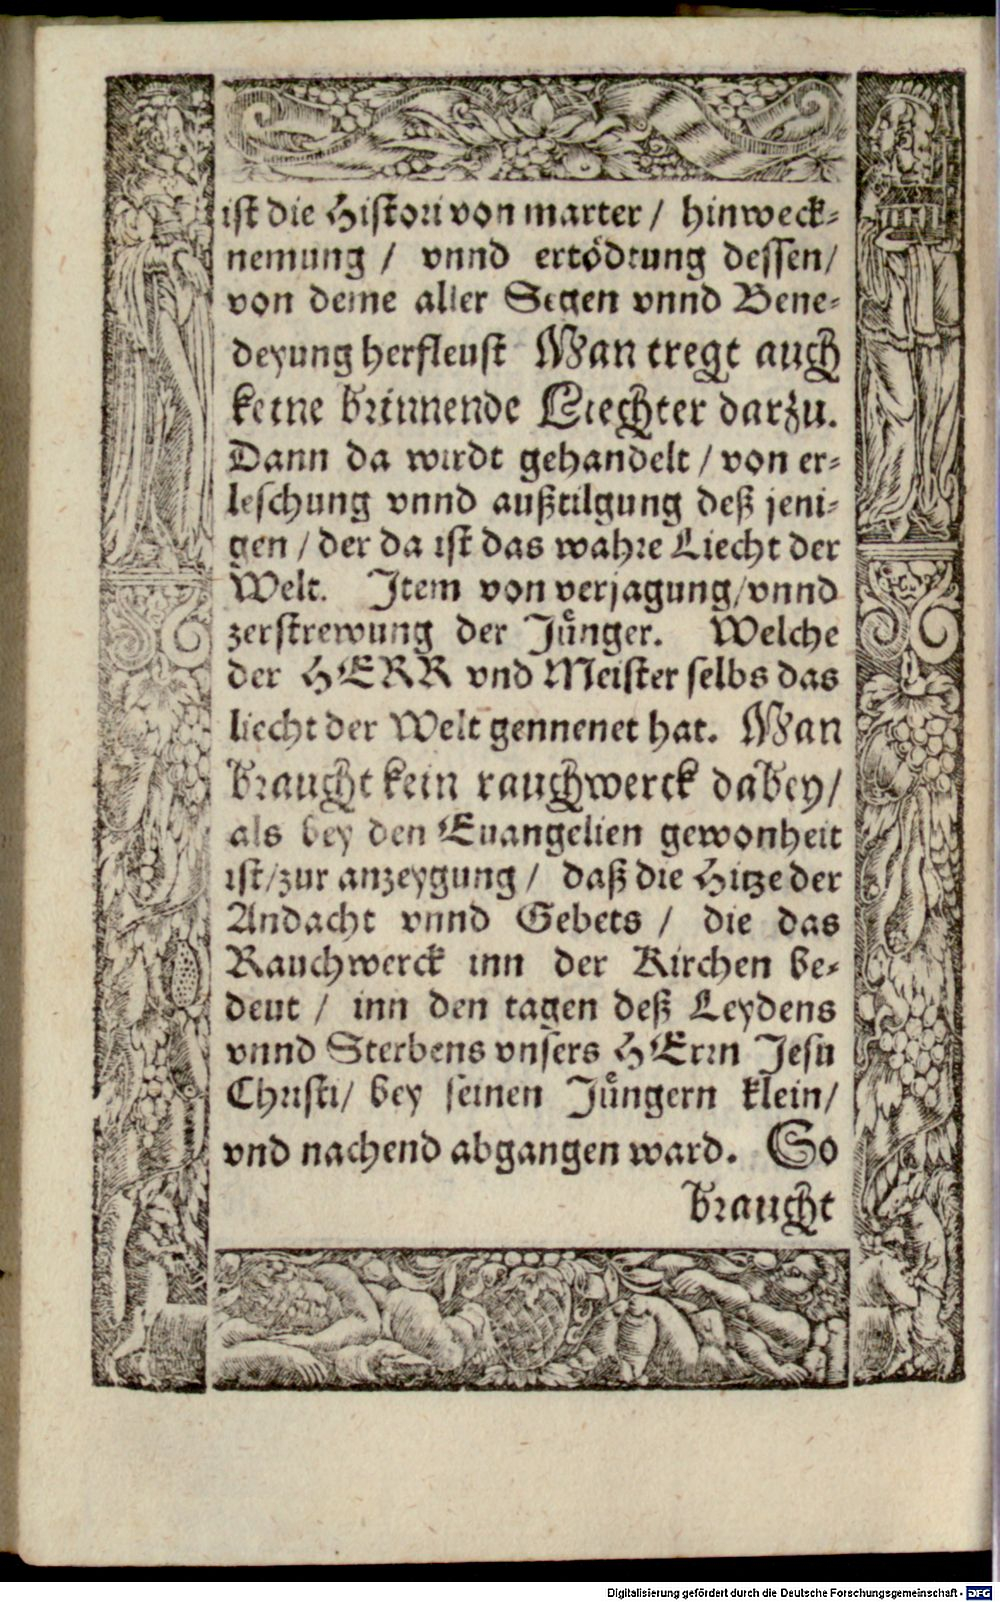 ist die Histori von marter / hinweck-
nemung / vnnd ertödtung dessen/
von deme aller Segen vnnd Bene-
deyung herfleust Man tregt auch
keine brinnende Liechter darzu.
Dann da wirdt gehandelt / von er-
leschung vnnd außtilgung deß jeni-
gen / der da ist das wahre Liecht der
Welt. Item von verjagung/vnnd
zerstrewung der Jünger. Welche
der HERR vnd Meister selbs das
liecht der Welt gennenet hat. Man
braucht kein rauchwerck dabey/
als bey den Euangelien gewonheit
ist/zur anzeygung / daß die Hitze der
Andacht vnnd Gebets / die das
Rauchwerck inn der Kirchen be-
deut / inn den tagen deß Leydens
vnnd Sterbens vnsers HErrn Jesu
Christi/ bey seinen Jüngern klein/
vnd nachend abgangen ward. So
braucht
Digitalisierung gefördert durch die Deutsche Forschungsgemeinschaft - DFG